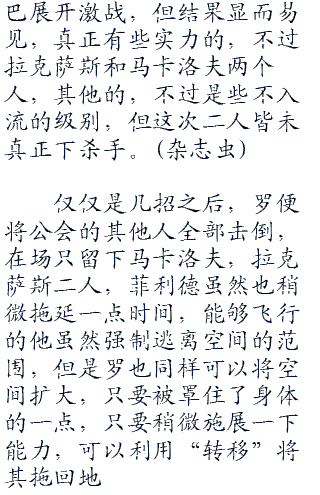 巴展开激战，但结果显而易
见，真正有些实力的，不过
拉克萨斯和马卡洛夫两个
人，其他的，不过是些不入
流的级别，但这次二人皆未
真正下杀手。(杂志虫)
仅仅是几招之后，罗便
将公会的其他人全部击倒，
在场只留下马卡洛夫，拉克
萨斯二人，菲利德虽然也稍
微拖延一点时间，能够飞行
的他虽然强制逃离空间的范
围，但是罗也同样可以将空
间扩大，只要被罩住了身体
的一点，只要稍微施展一下
能力，可以利用“转移”将
其拖回地